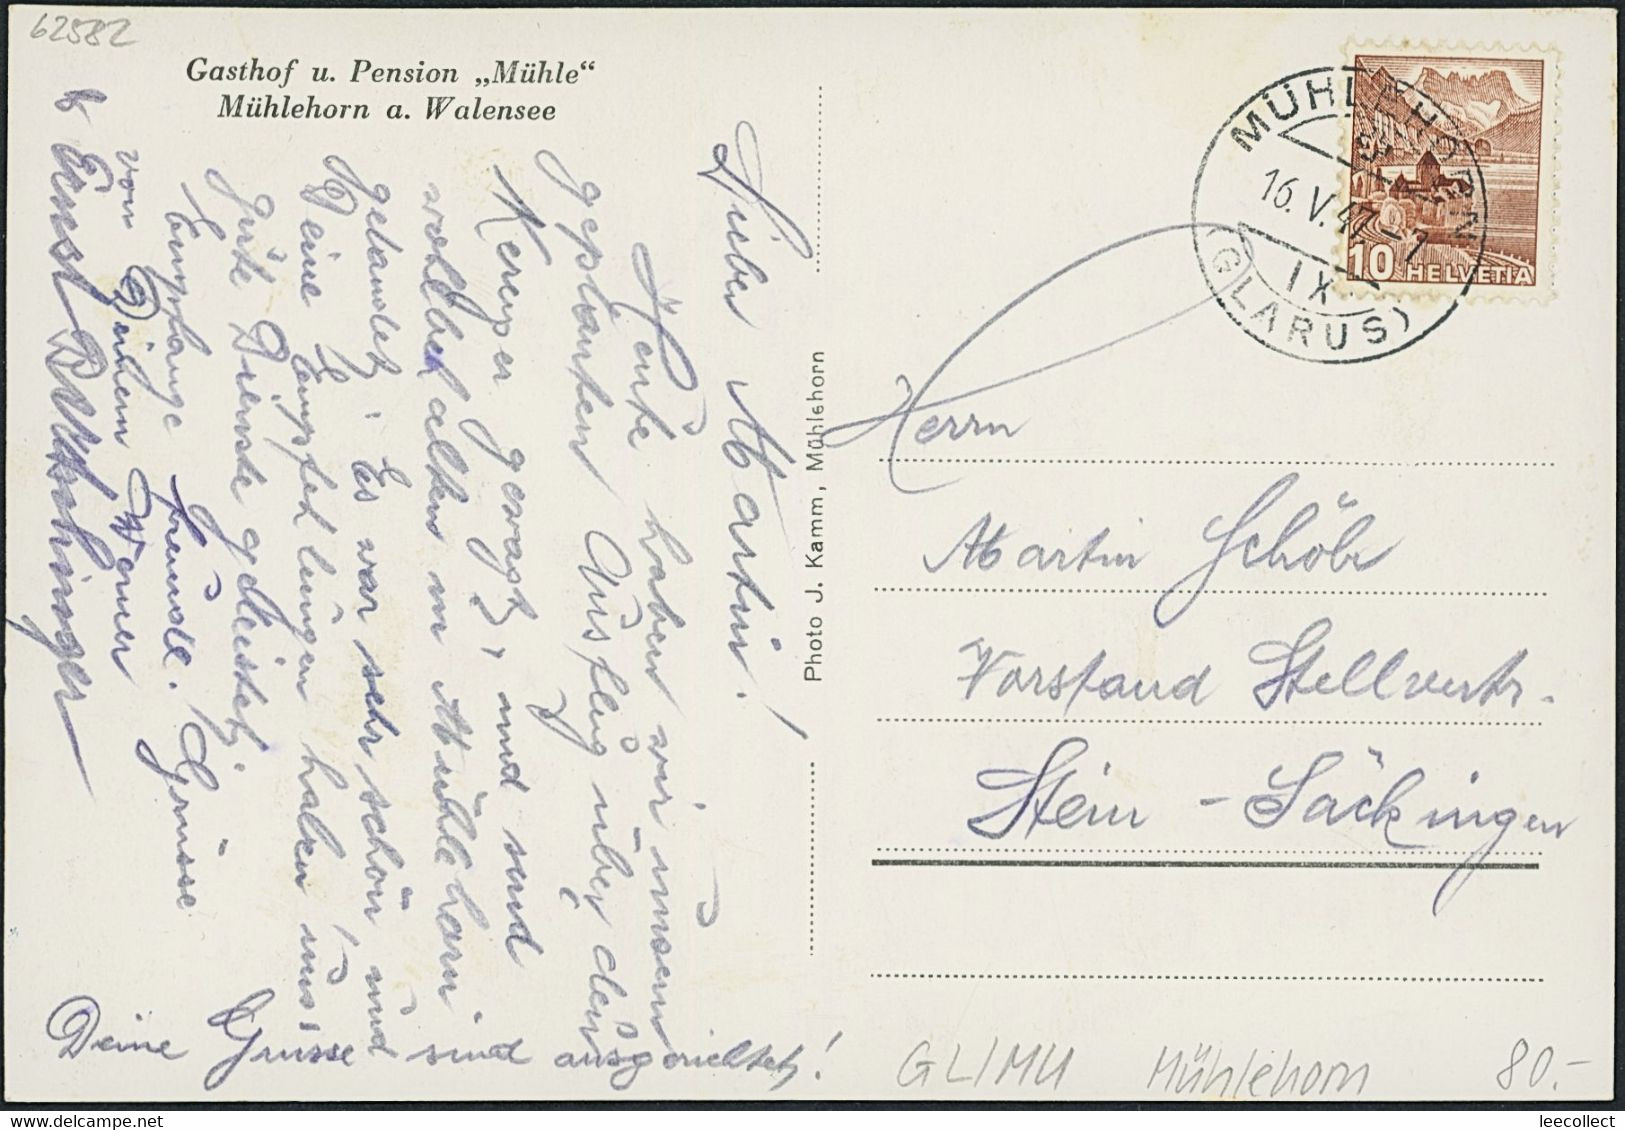 62582
Gasthof u. Pension „Mühle“
Mühlehorn a. Walensee
Lieber Martin!
Heute haben wir unsern
geplanten Ausflug über den
Kerenzer gewagt, und sind
wohlbehalten in Mühlehorn
gelandet. Es war sehr schön und
Deine Empfehlungen haben uns
gute Dienste geleistet.
Empfange freundl. Grüsse
von Deinem Werner
& Ernst
Deine Grüsse sind ausgerichtet!
Photo J. Kamm, Mühlehorn
MÜHLEHORN
16. V. 47 - 7
IX
(GLARUS)
10 HELVETIA
Herrn
Martin Schöb
Vorstand Stellvertr.
Stein - Säckingen
GL/MU Mühlehorn 80.-
leecollect